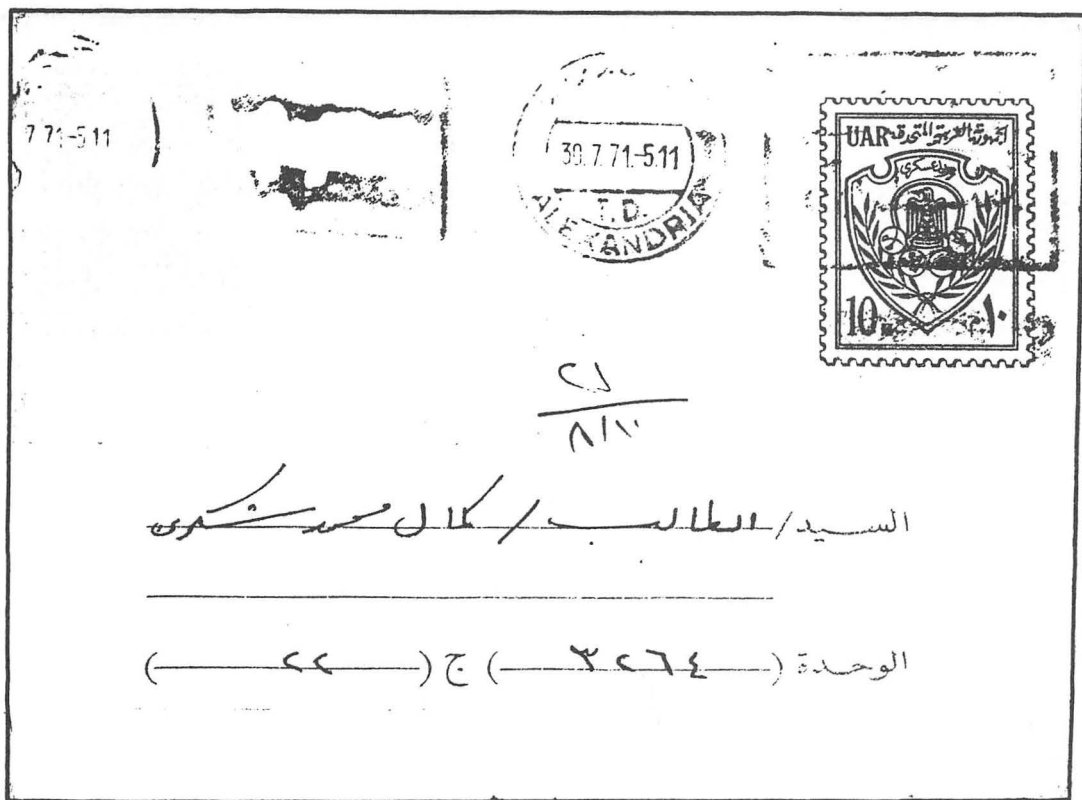 7 71-5 11
30.7.71-5.11
T.D.
ALEXANDRIA
UAR الجمهورية العربية المتحدة
بريد عسكري
10 m ١٠ م
٨/١٠
السيد/ الطالب / كمال محمد شكرى
الوحدة (٣٢٦٤) ج (٢٢)